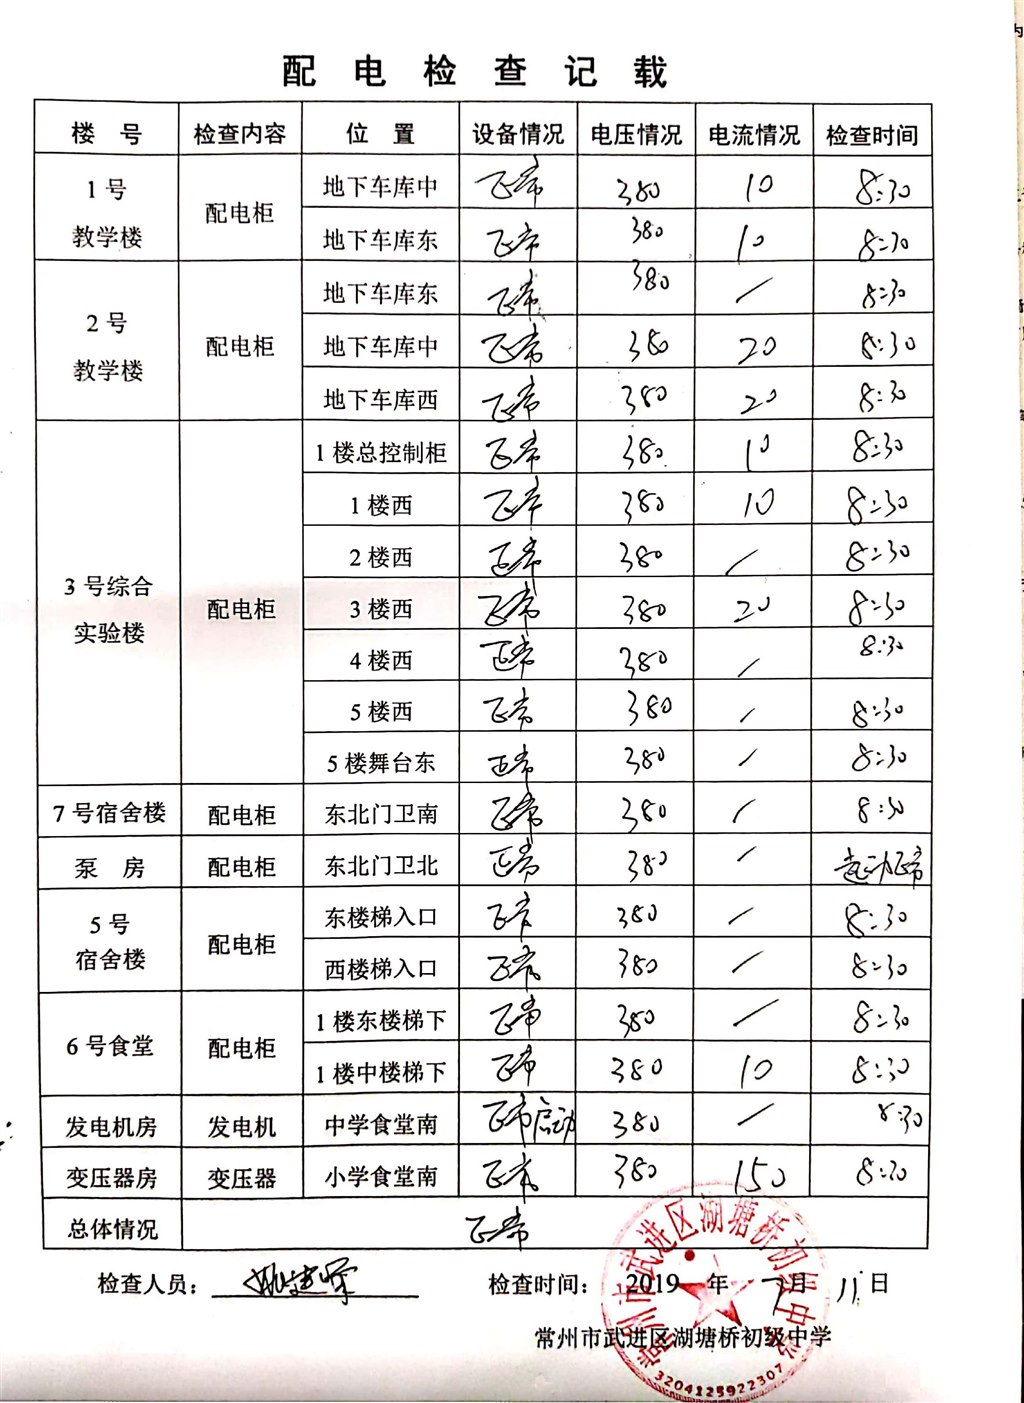 配电检查记载
楼号 检查内容 位置 设备情况 电压情况 电流情况 检查时间
1号教学楼 配电柜 地下车库中 正常 380 10 8:30
地下车库东 正常 380 10 8:30
2号教学楼 配电柜 地下车库东 正常 380 / 8:30
地下车库中 正常 380 20 8:30
地下车库西 正常 380 20 8:30
3号综合实验楼 配电柜 1楼总控制柜 正常 380 10 8:30
1楼西 正常 380 10 8:30
2楼西 正常 380 / 8:30
3楼西 正常 380 20 8:30
4楼西 正常 380 / 8:30
5楼西 正常 380 / 8:30
5楼舞台东 正常 380 / 8:30
7号宿舍楼 配电柜 东北门卫南 正常 380 / 8:30
泵房 配电柜 东北门卫北 正常 380 / 起动正常
5号宿舍楼 配电柜 东楼梯入口 正常 380 / 8:30
西楼梯入口 正常 380 / 8:30
6号食堂 配电柜 1楼东楼梯下 正常 380 / 8:30
1楼中楼梯下 正常 380 10 8:30
发电机房 发电机 中学食堂南 正常启动 380 / 8:30
变压器房 变压器 小学食堂南 正常 380 150 8:30
总体情况 正常
检查人员： 检查时间： 2019 年 7月 11日
常州市武进区湖塘桥初级中学
常州市武进区湖塘桥初级中学
3204125922307